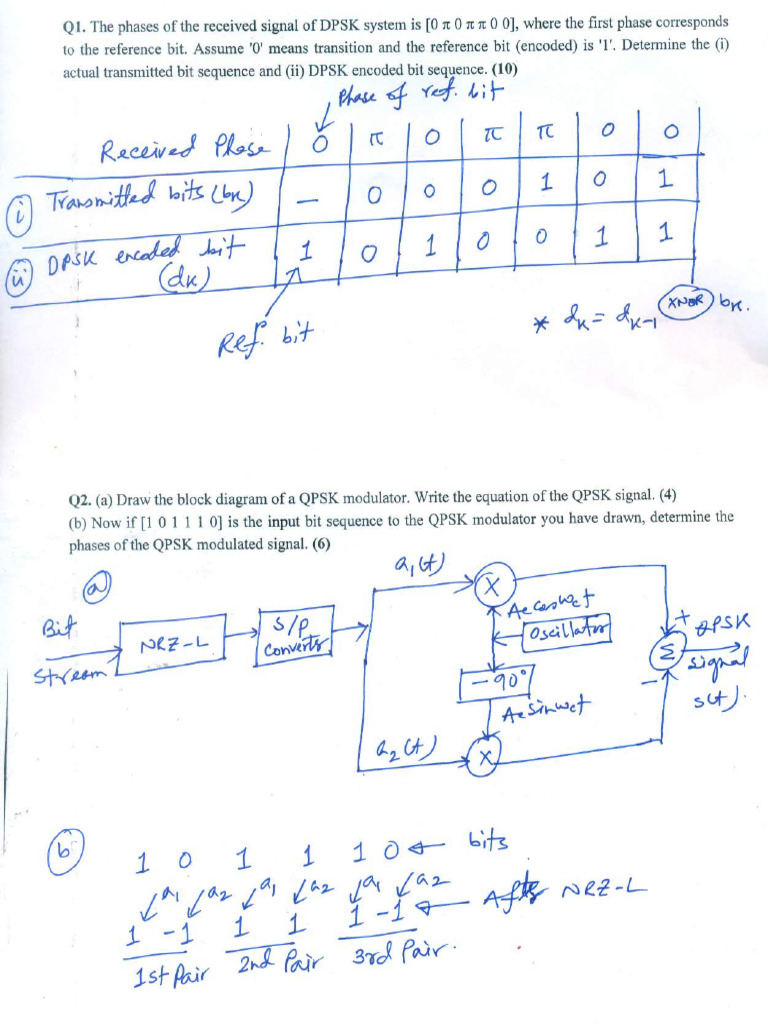 Q1. The phases of the received signal of DPSK system is [0 π 0 π π 0 0], where the first phase corresponds
to the reference bit. Assume '0' means transition and the reference bit (encoded) is '1'. Determine the (i)
actual transmitted bit sequence and (ii) DPSK encoded bit sequence. (10)
Phase of ref. bit
Received Phase 0 π 0 π π 0 0
(i) Transmitted bits (bk) — 0 0 0 1 0 1
(ii) DPSK encoded bit (dk) 1 0 1 0 0 1 1
Ref. bit
* dk = dk-1 XNOR bk.
Q2. (a) Draw the block diagram of a QPSK modulator. Write the equation of the QPSK signal. (4)
(b) Now if [1 0 1 1 1 0] is the input bit sequence to the QPSK modulator you have drawn, determine the
phases of the QPSK modulated signal. (6)
(a)
Bit
Stream
NRZ-L
S/P
Converter
a1(t)
X
Ac cos wct
Oscillator
-90°
Ac sin wct
a2(t)
X
+
Σ
-
QPSK
signal
s(t).
(b)
1 0 1 1 1 0 ← bits
a1 a2 a1 a2 a1 a2
1 -1 1 1 1 -1 ← After NRZ-L
1st Pair 2nd Pair 3rd Pair.